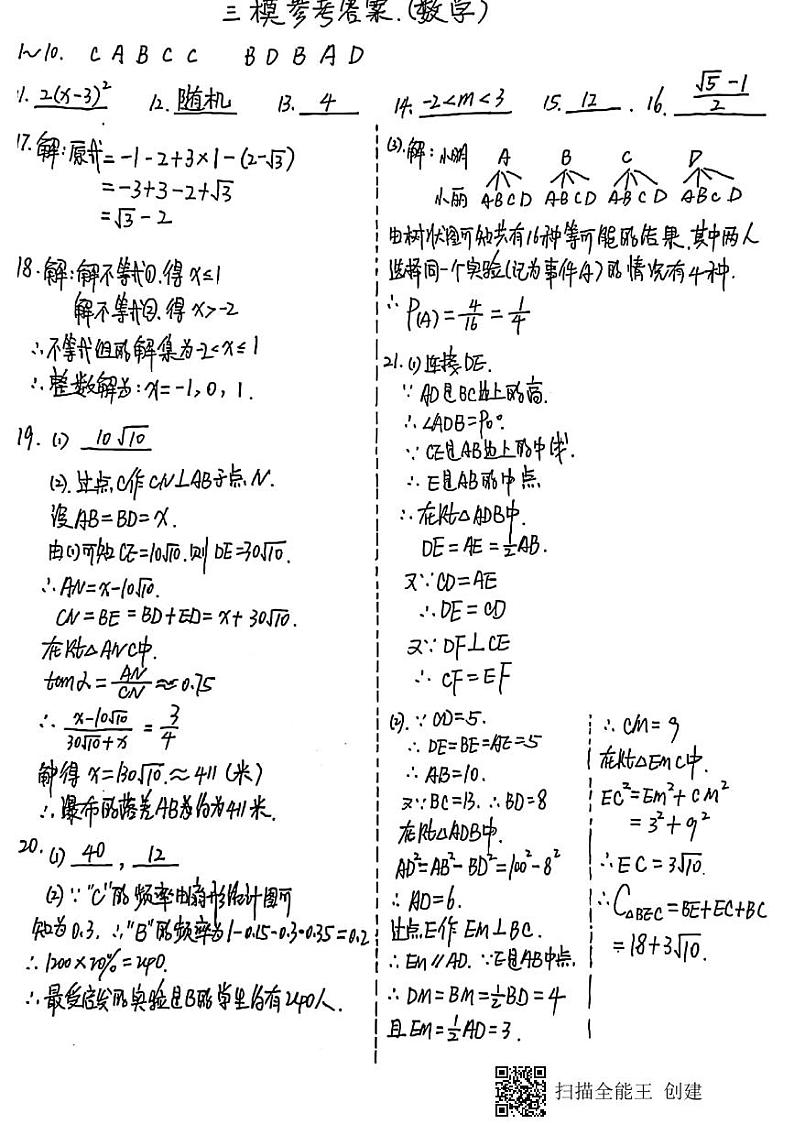 三模参考答案.(数学)
1~10. C A B C C B D B A D
11. 2(x-3)² 12. 随机 13. 4 14. -2<m<3 15. 12 . 16. (√5-1)/2
17. 解:原式=-1-2+3×1-(2-√3)
=-3+3-2+√3
=√3-2
18. 解:解不等式①,得 x≤1
解不等式②,得 x>-2
∴不等式组的解集为-2<x≤1
∴整数解为:x=-1,0,1.
19. (1) 10√10
(2).过点C作CN⊥AB于点N.
设AB=BD=x.
由(1)可知CE=10√10.则DE=30√10.
∴AN=x-10√10.
CN=BE=BD+ED=x+30√10.
在Rt△ANC中.
tanα=AN/CN≈0.75
∴(x-10√10)/(30√10+x)=3/4
解得 x=130√10.≈411(米)
∴瀑布的落差AB约为411米.
20. (1) 40 , 12
(2)∵"C"的频率由扇形统计图可
知为0.3. ∴"B"的频率为1-0.15-0.3-0.35=0.2
∴1200×20%=240.
∴最受启发的实验是B的学生约有240人.
(3).解:小明 A B C D
小丽 A B C D A B C D A B C D A B C D
由树状图可知共有16种等可能的结果,其中两人
选择同一个实验(记为事件A)的情况有4种.
∴P(A)=4/16=1/4
21.(1)连接DE.
∵AD是BC边上的高.
∴∠ADB=90°.
∵CE是AB边上的中线.
∴E是AB的中点
∴在Rt△ADB中.
DE=AE=½AB.
又∵CD=AE
∴DE=CD
又∵DF⊥CE
∴CF=EF
(2).∵CD=5.
∴DE=BE=AE=5
∴AB=10.
又∵BC=13.∴BD=8
在Rt△ADB中.
AD²=AB²-BD²=100-8²
∴AD=6.
过点E作EM⊥BC.
∴EM∥AD.∵E是AB中点.
∴DM=BM=½BD=4
且EM=½AD=3.
∴CM=9
在Rt△EMC中.
EC²=EM²+CM²
=3²+9²
∴EC=3√10.
∴C△BEC=BE+EC+BC
=18+3√10.
扫描全能王 创建